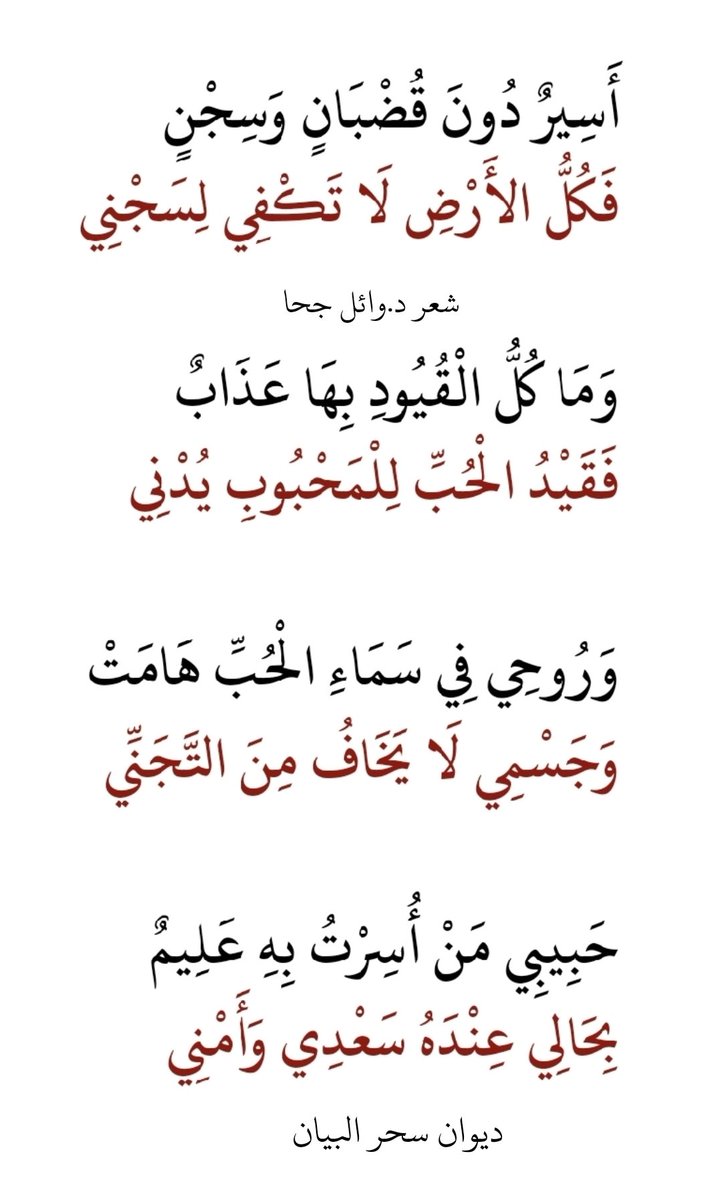 أَسِيرٌ دُونَ قُضْبَانٍ وَسِجْنٍ
فَكُلُّ الأَرْضِ لَا تَكْفِي لِسَجْنِي
شعر د.وائل جحا
وَمَا كُلُّ الْقُيُودِ بِهَا عَذَابٌ
فَقَيْدُ الْحُبِّ لِلْمَحْبُوبِ يُدْنِي
وَرُوحِي فِي سَمَاءِ الْحُبِّ هَامَتْ
وَجَسْمِي لَا يَخَافُ مِنَ التَّجَنِّي
حَبِيبِي مَنْ أُسِرْتُ بِهِ عَلِيمٌ
بِحَالِي عِنْدَهُ سَعْدِي وَأَمْنِي
ديوان سحر البيان